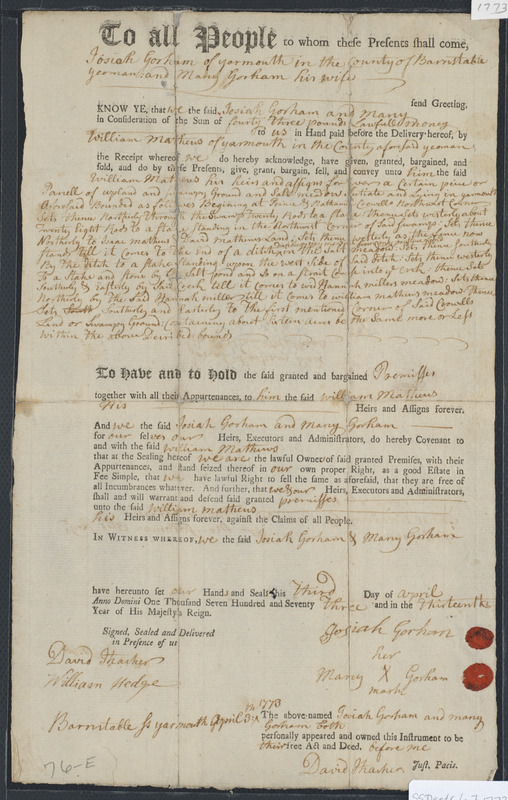 1773
To all People to whom these Presents shall come,
Josiah Gorham of yarmouth in the County of Barnstable
yeoman and Mary Gorham his wife
send Greeting,
KNOW YE, that we the said Josiah Gorham and mary
In Consideration of the Sum of fourty three pounds Lawfull money
to us in Hand paid before the Delivery hereof, by
William Mathews of yarmouth in the County aforesd yeoman
the Receipt whereof we do hereby acknowledge, have given, granted, bargained, and
sold, and do by these Presents, give, grant, bargain, sell, and convey unto him the said
William Mathews his heirs and assigns for ever a certain piece or
Parsell of upland and swampy Ground and Salt meadow Scituate and Lying in yarmouth
aforesaid Bounded as followes Begining at Prince & Nathan Crowells Northwest Corner
Sets thence Northerly through the Swamp Twenty Rods to a stake thence sets westerly about
Twenty Eight Rods to a stake standing in the Northwest Corner of Said Swamp: Sets thence
Northerly to Isaac mathews and David mathews Land: Sets thence westerly as the fence now
Stands till it comes to the End of a ditch Sets thence Southerly
By the ditch to a stake standing upon the west side of said ditch: Sets thence westerly
To a stake and stone by the Salt pond and so on a strait to the Creek: thence Sets
Southerly & Easterly by the Creek till it comes to wd Hannah millers meadow: Sets thence
Northerly by the Said Hannah miller till it comes to william mathews meadow: Thence
Sets Southerly and Easterly to the first mentioned Corner of said Crowells
Land or Swampy Ground: Containing about thirteen acres be the Same more or Less
within the above Described bounds
To Have and to Hold the said granted and bargained Premisses
together with all their Appurtenances, to him the said william Mathews
his Heirs and Assigns forever.
And we the said Josiah Gorham and Mary Gorham
for our selves our Heirs, Executors and Administrators, do hereby Covenant to
and with the said William Mathews
that at the Sealing hereof we are the lawful Owners of said granted Premises, with their
Appurtenances, and stand seized thereof in our own proper Right, as a good Estate in
Fee Simple, that we have lawful Right to sell the same as aforesaid, that they are free of
all Incumbrances whatever. And further, that we & our Heirs, Executors and Administrators,
shall and will warrant and defend said granted premisses
unto the said William mathews
his Heirs and Assigns forever, against the Claims of all People.
IN WITNESS WHEREOF, we the said Josiah Gorham & Mary Gorham
have hereunto set our Hands and Seals this third Day of April
Anno Domini One Thousand Seven Hundred and Seventy three and in the thirteenth
Year of His Majesty's Reign.
Signed, Sealed and Delivered
in Presence of us
Josiah Gorham
David Thacher
William Hedge
her
Mary X Gorham
mark
Barnstable ss yarmouth April 3d 1773 The above-named Josiah Gorham and mary
Gorham both
personally appeared and owned this Instrument to be
their free Act and Deed, before me
David Thacher Just. Pacis.
76-E